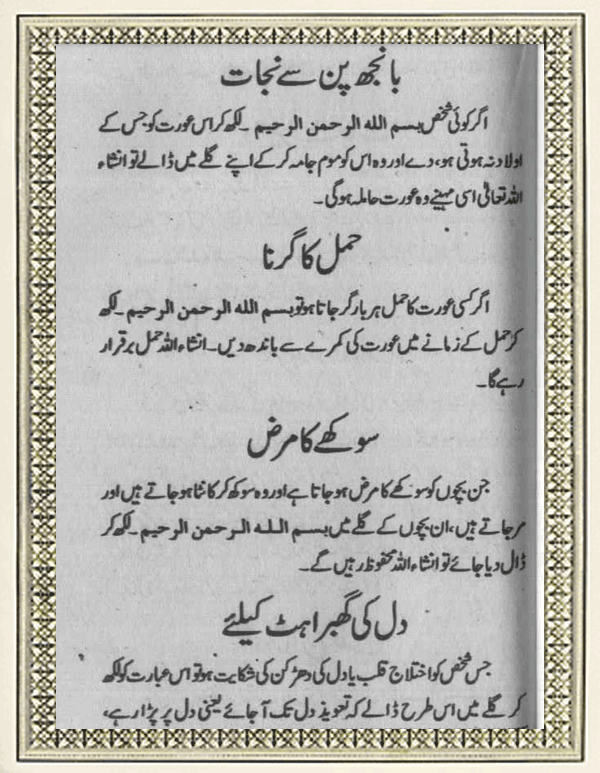 بانجھ پن سے نجات
اگر کوئی شخص بسم الله الرحمن الرحيم ۔ لکھ کر اس عورت کو جس کے
اولاد نہ ہوتی ہو، دے اور وہ اس کو موم جامہ کر کے اپنے گلے میں ڈالے تو انشاء
اللہ تعالیٰ اسی مہینے وہ عورت حاملہ ہوگی ۔
حمل کا گرنا
اگر کسی عورت کا حمل ہر بار گر جاتا ہو تو بسم الله الرحمن الرحيم ۔ لکھ
کر حمل کے زمانے میں عورت کی کمرے سے باندھ دیں۔ انشاء اللہ حمل برقرار
رہے گا۔
سوکھے کا مرض
جن بچوں کو سوکھے کا مرض ہو جاتا ہے اور وہ سوکھ کر کانٹا ہو جاتے ہیں اور
مرجاتے ہیں، ان بچوں کے گلے میں بسم الله الرحمن الرحيم ۔ لکھ کر
ڈال دیا جائے تو انشاء اللہ محفوظ رہیں گے۔
دل کی گھبراہٹ کیلئے
جس شخص کو اختلاج قلب یا دل کی دھڑکن کی شکایت ہو تو اس عبارت کو لکھ
کر گلے میں اس طرح ڈالے کہ تعویذ دل تک آجائے یعنی دل پر پڑا رہے،